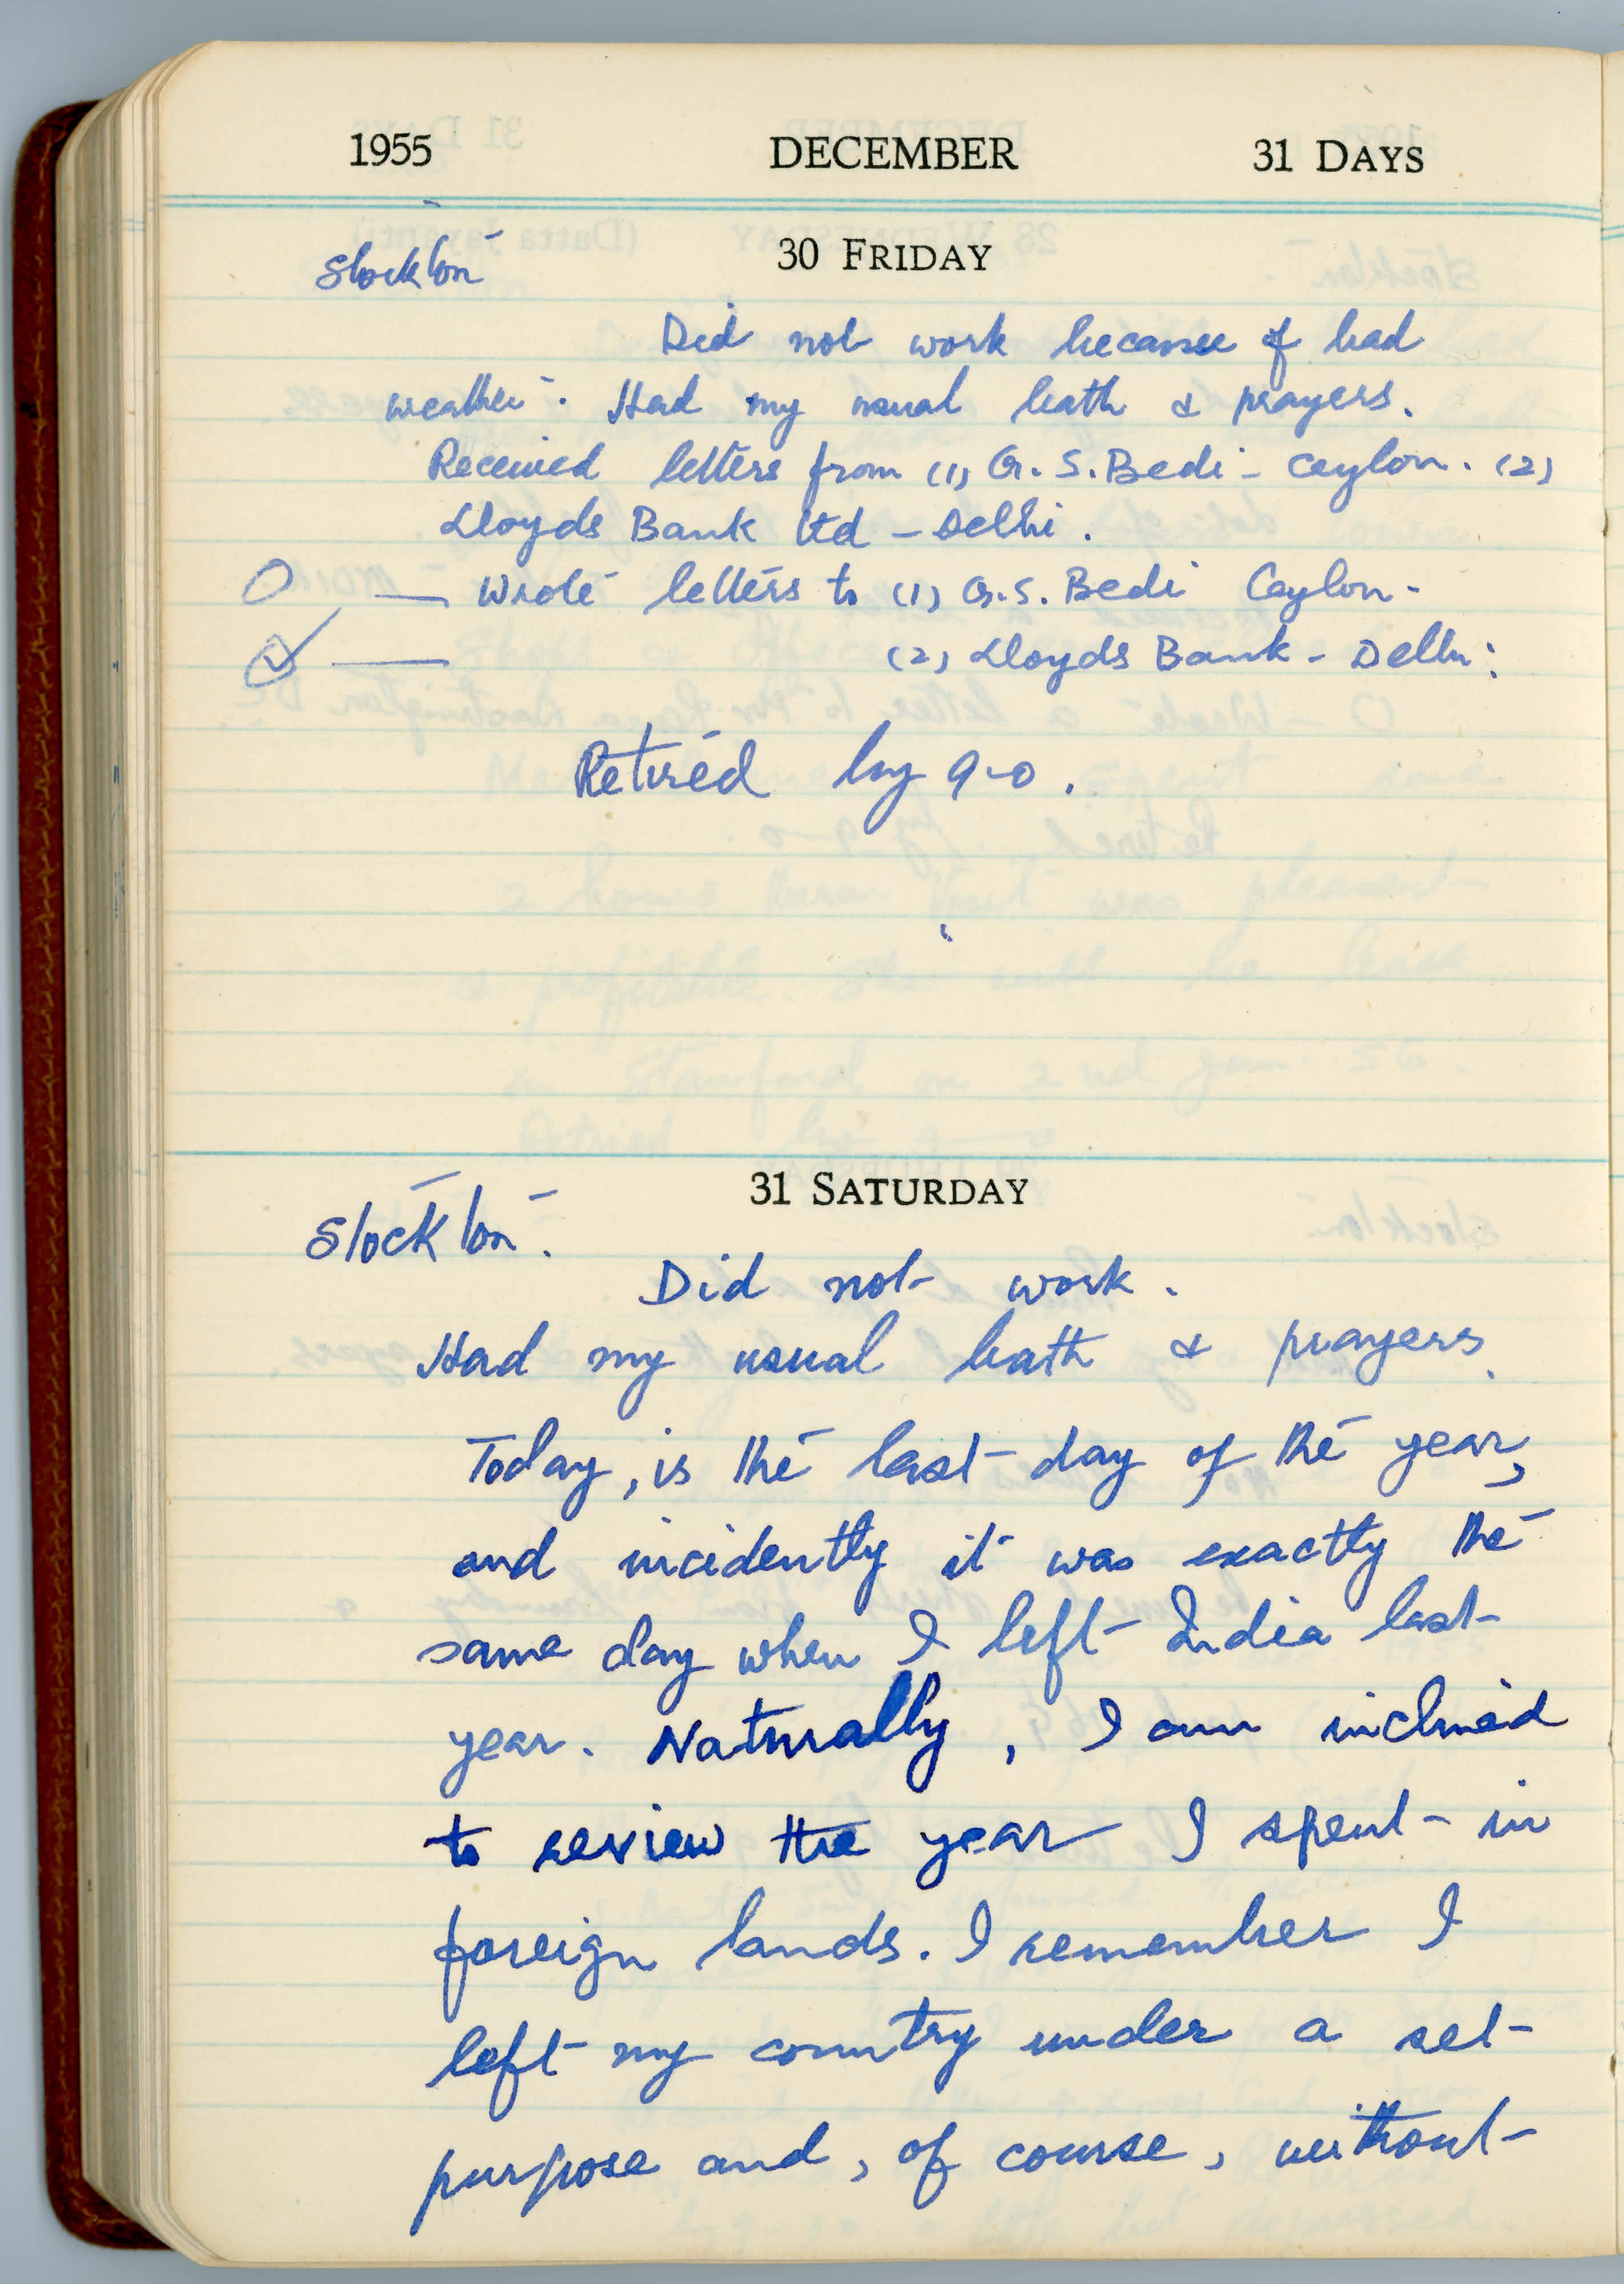 1955 DECEMBER 31 DAYS
30 FRIDAY
Stockton
Did not work because of bad
weather. Had my usual bath & prayers.
Received letters from (1) G. S. Bedi - Ceylon. (2)
Lloyds Bank Ltd - Delhi.
O — Wrote letters to (1) G. S. Bedi Ceylon -
✓ — (2) Lloyds Bank - Delhi.
Retired by 9-0.
31 SATURDAY
Stockton.
Did not work.
Had my usual bath & prayers.
Today, is the last day of the year,
and incidently it was exactly the
same day when I left India last
year. Naturally, I am inclined
to review the year I spent in
foreign lands. I remember I
left my country under a set
purpose and, of course, without